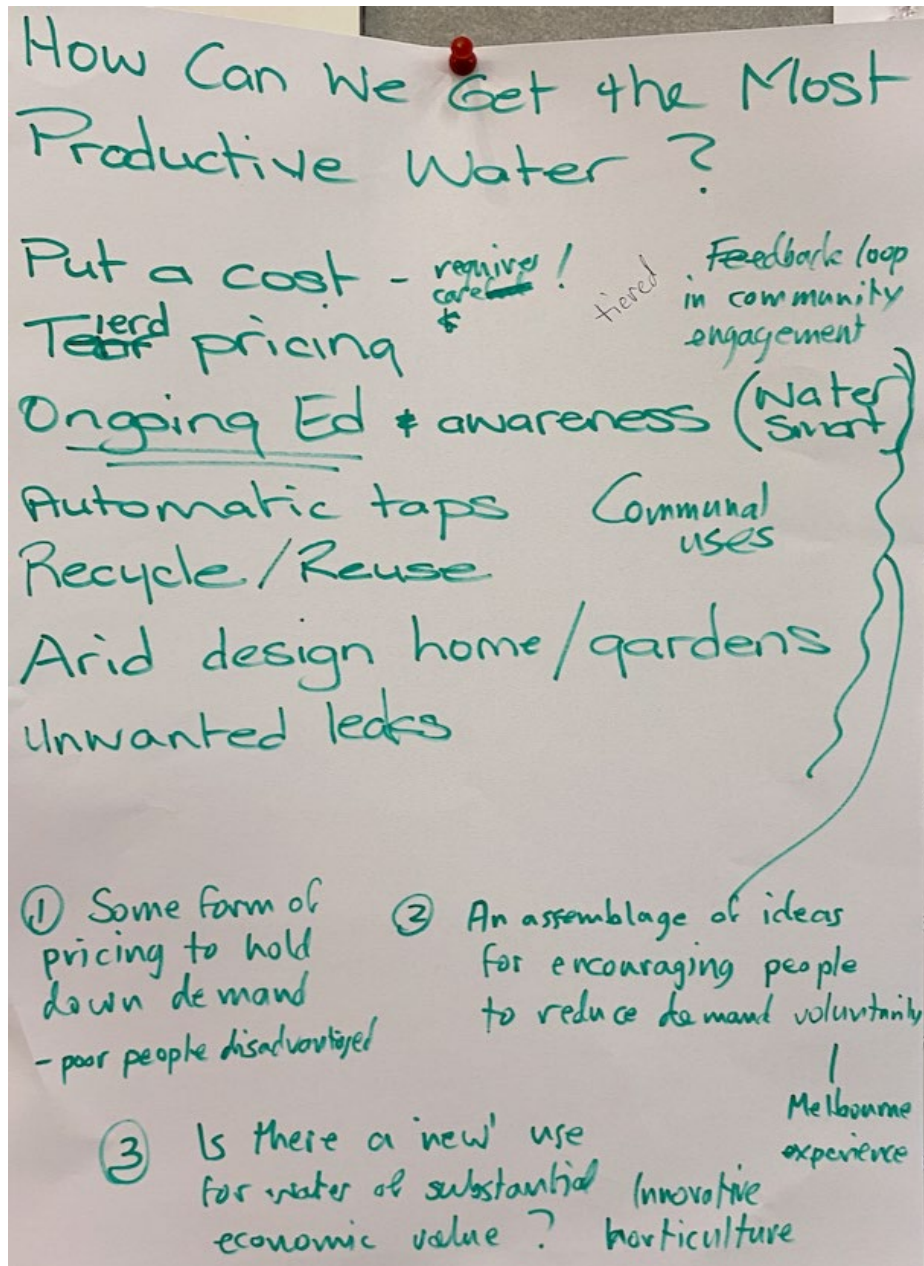 How Can We Get the Most
Productive Water ?
Put a cost - requires !
care
$
tiered
Tierd pricing
. Feedback loop
in community
engagement
Ongoing Ed & awareness (Water
Smart)
Automatic taps
Communal
uses
Recycle/Reuse
Arid design home/gardens
Unwanted leaks
① Some form of
pricing to hold
down demand
- poor people disadvantaged
② An assemblage of ideas
for encouraging people
to reduce demand voluntarily
Melbourne
experience
③ Is there a 'new' use
for water of substantial
economic value ?
Innovative
horticulture